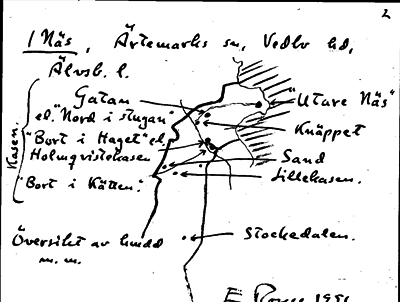 2
1 Näs, Ärtemarks sn, Vedbo hd,
Älvsb. l.
Kasen.
Gatan
"Utare Näs"
el. "Nord i stugan"
Knäppet
"Bort i Haget" el.
Holmqvistekasen
Sand
"Bort i Kätten."
Lillekasen.
Översikt av
Stockedalen.
m. m.